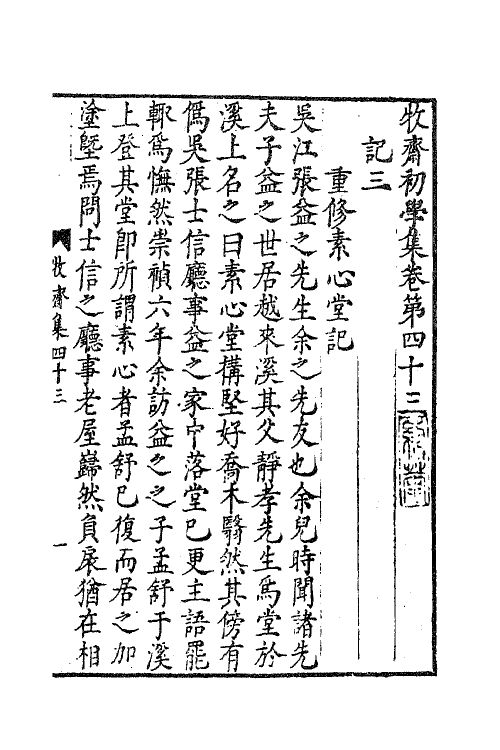 牧齋初學集卷第四十三
記三
重修素心堂記
吳江張益之先生余之先友也余兒時聞諸先
夫子益之世居越來溪其父靜孝先生爲堂於
溪上名之曰素心堂構堅好喬木翳然其傍有
僞吳張士信廳事益之家中落堂已更主語罷
輒爲憮然崇禎六年余訪益之之子孟舒于溪
上登其堂卽所謂素心者孟舒已復而居之加
塗塈焉問士信之廳事老屋巋然負扆猶在相
牧齋集四十三
一